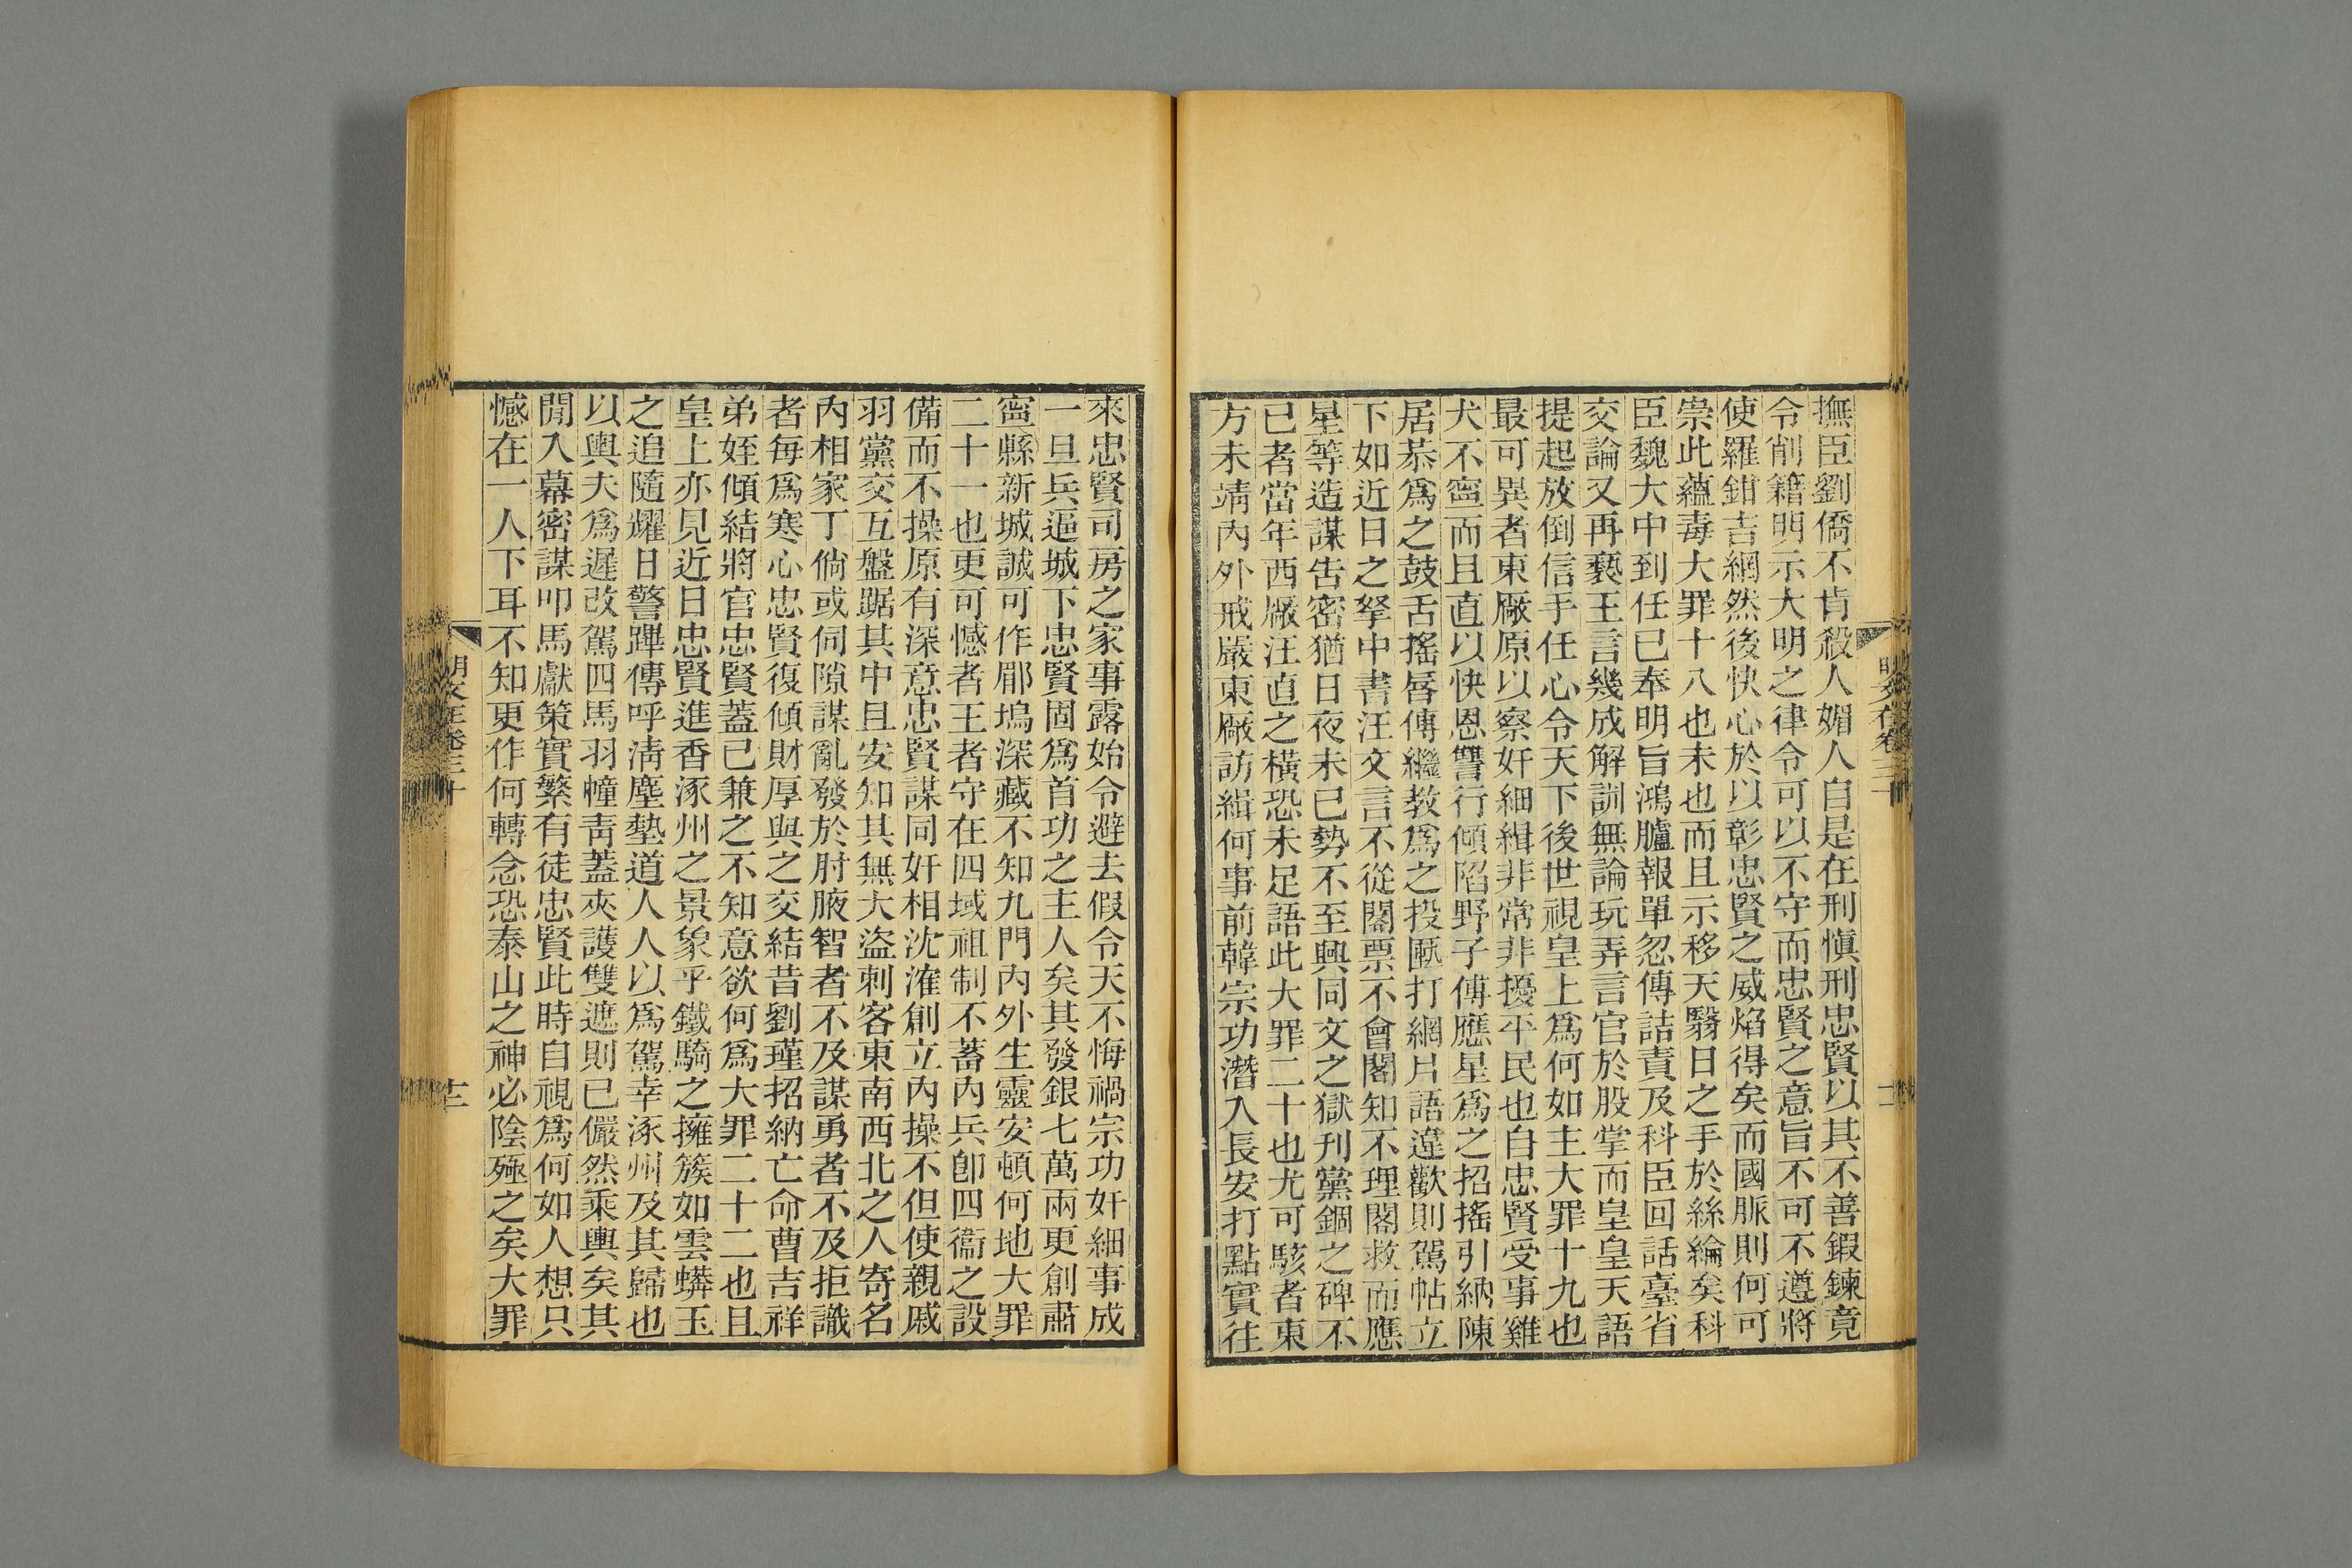 撫臣劉僑不肯殺人媚人自是在刑愼刑忠賢以其不善鍜鍊竟
令削籍明示大明之律令可以不守而忠賢之意旨不可不遵將
使羅鉗吉網然後快心於以彰忠賢之威焰得矣而國脈則何可
崇此蘊毒大罪十八也未也而且示移天翳日之手於絲綸矣科
臣魏大中到任已奉明旨鴻臚報單忽傳詰責及科臣回話臺省
交論又再褻王言幾成解訓無論玩弄言官於股掌而皇皇天語
提起放倒信手任心令天下後世視皇上爲何如主大罪十九也
最可異者東厰原以察奸細緝非常非擾平民也自忠賢受事雞
犬不寧而且直以快恩讐行傾陷野子傅應星爲之招搖引納陳
居恭爲之鼓舌搖唇傳繼教爲之投匭打網片語違歡則駕帖立
下如近日之拏中書汪文言不從閣票不會閣知不理閣救而應
星等造謀告密猶日夜未已勢不至興同文之獄刋黨錮之碑不
已者當年西厰汪直之橫恐未足語此大罪二十也尤可駭者東
方未靖內外戒嚴東厰訪緝何事前韓宗功潛入長安打點實往
來忠賢司房之家事露始令避去假令天不悔禍宗功奸細事成
一旦兵逼城下忠賢固爲首功之主人矣其發銀七萬兩更創肅
寧縣新城誠可作郿塢深藏不知九門內外生靈安頓何地大罪
二十一也更可憾者王者守在四域祖制不蓄內兵卽四衞之設
備而不操原有深意忠賢謀同奸相沈㴶創立內操不但使親戚
羽黨交互盤踞其中且安知其無大盜刺客東南西北之人寄名
內相家丁倘或伺隙謀亂發於肘腋智者不及謀勇者不及拒識
者每爲寒心忠賢復傾財厚與之交結昔劉瑾招納亡命曹吉祥
弟姪傾結將官忠賢蓋已兼之不知意欲何爲大罪二十二也且
皇上亦見近日忠賢進香涿州之景象乎鐵騎之擁簇如雲蟒玉
之追隨耀日警蹕傳呼淸塵墊道人人以爲駕幸涿州及其歸也
以輿夫爲遲改駕四馬羽幢靑蓋夾護雙遮則已儼然乘輿矣其
閒入幕密謀叩馬獻策實繁有徒忠賢此時自視爲何如人想只
憾在一人下耳不知更作何轉念恐泰山之神必陰殛之矣大罪
明文在卷三十
十二